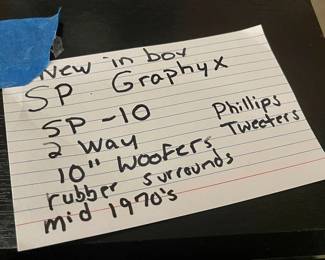 New in box
SP Graphyx
SP-10
2 Way
10" Woofers, Phillips Tweeters
rubber surrounds
mid 1970's